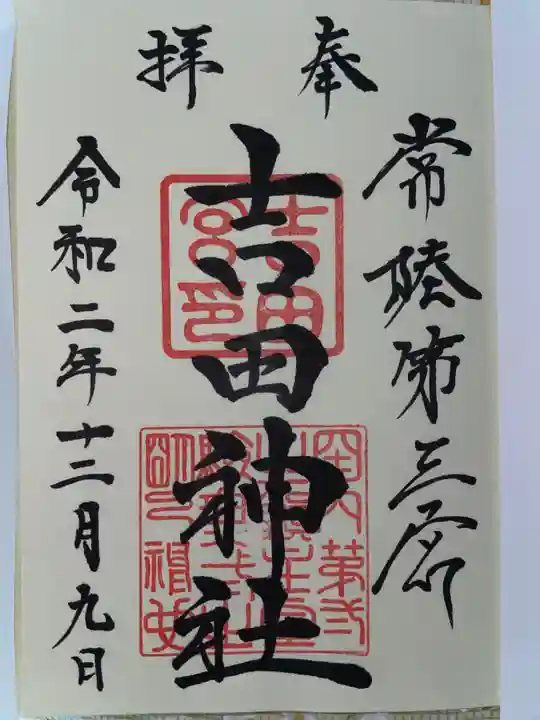 奉拝
常陸第三宮
吉田神社
令和二年十二月九日
吉田宮印